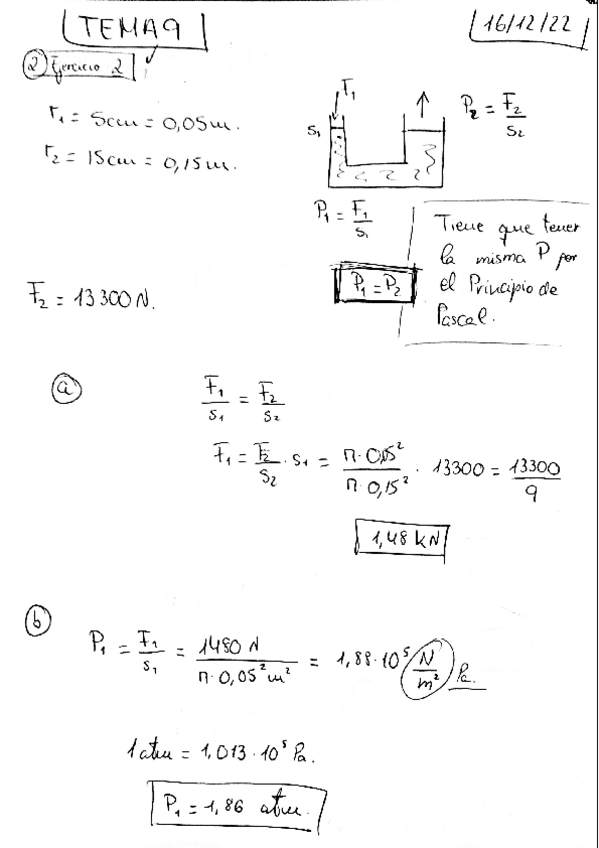 TEMA 9
16/12/22
② Ejercicio 2
r₁ = 5cm = 0,05m.
r₂ = 15cm = 0,15m.
F₁
S₁
P₂ = F₂/S₂
P₁ = F₁/S₁
P₁ = P₂
Tiene que tener
la misma P por
el Principio de
Pascal.
F₂ = 13300 N.
ⓐ
F₁/S₁ = F₂/S₂
F₁ = F₂/S₂ · S₁ = π·0,05²/π·0,15² · 13300 = 13300/9
1,48 kN
ⓑ
P₁ = F₁/S₁ = 1480 N/π·0,05² m² = 1,88·10⁵ N/m² Pa.
1 atm = 1,013·10⁵ Pa.
P₁ = 1,86 atm.